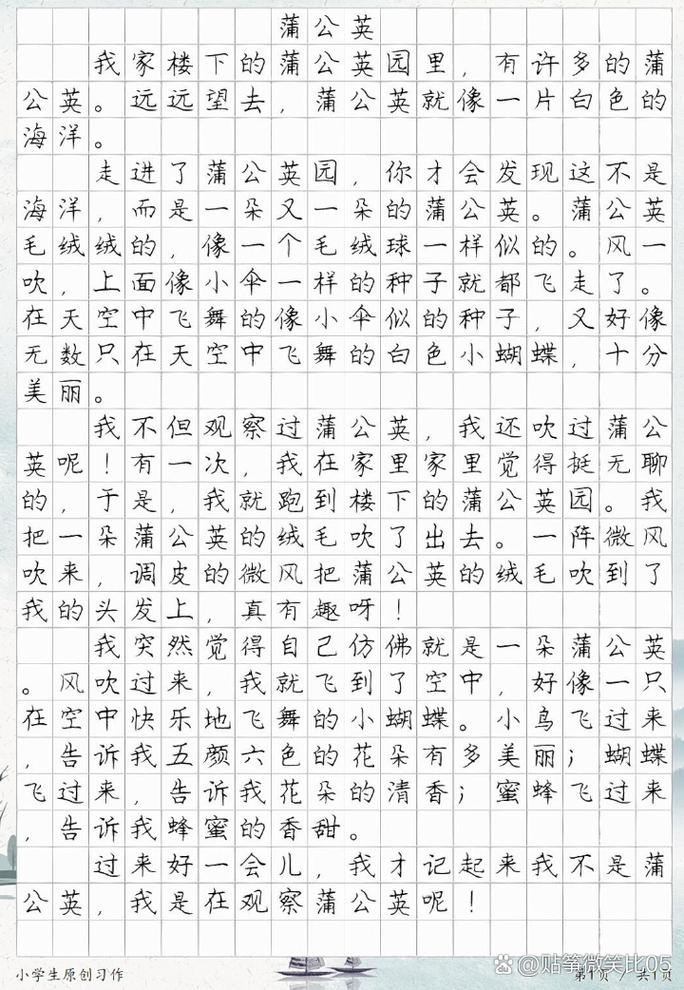 蒲公英
我家楼下的蒲公英园里，有许多的蒲
公英。远远望去，蒲公英就像一片白色的
海洋。
走进了蒲公英园，你才会发现这不是
海洋，而是一朵又一朵的蒲公英。蒲公英
毛绒绒的，像一个毛绒球一样似的。风一
吹，上面像小伞一样的种子就都飞走了。
在天空中飞舞的像小伞似的种子，又好像
无数只在天空中飞舞的白色小蝴蝶，十分
美丽。
我不但观察过蒲公英，我还吹过蒲公
英呢！有一次，我在家里家里觉得挺无聊
的，于是，我就跑到楼下的蒲公英园。我
把一朵蒲公英的绒毛吹了出去。一阵微风
吹来，调皮的微风把蒲公英的绒毛吹到了
我的头发上，真有趣呀！
我突然觉得自己仿佛就是一朵蒲公英
。风吹过来，我就飞到了空中，好像一只
在空中快乐地飞舞的小蝴蝶。小鸟飞过来
，告诉我五颜六色的花朵有多美丽；蝴蝶
飞过来，告诉我花朵的清香；蜜蜂飞过来
，告诉我蜂蜜的香甜。
过来好一会儿，我才记起来我不是蒲
公英，我是在观察蒲公英呢！
小学生原创习作
@贴筝微笑比05
第1页 / 共1页